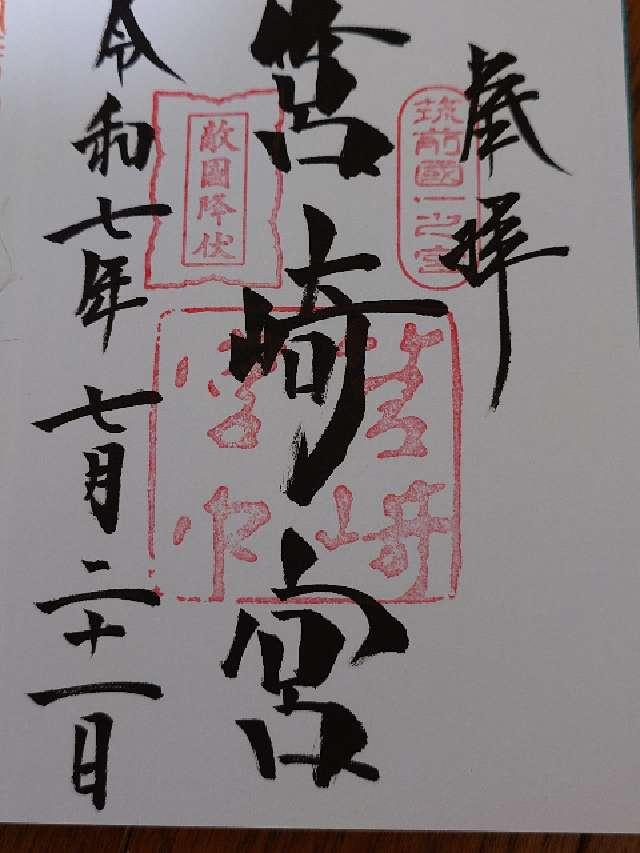 奉拝
筑前國一之宮
筥崎宮
筥崎
宮印
敵國降伏
令和七年七月二十一日